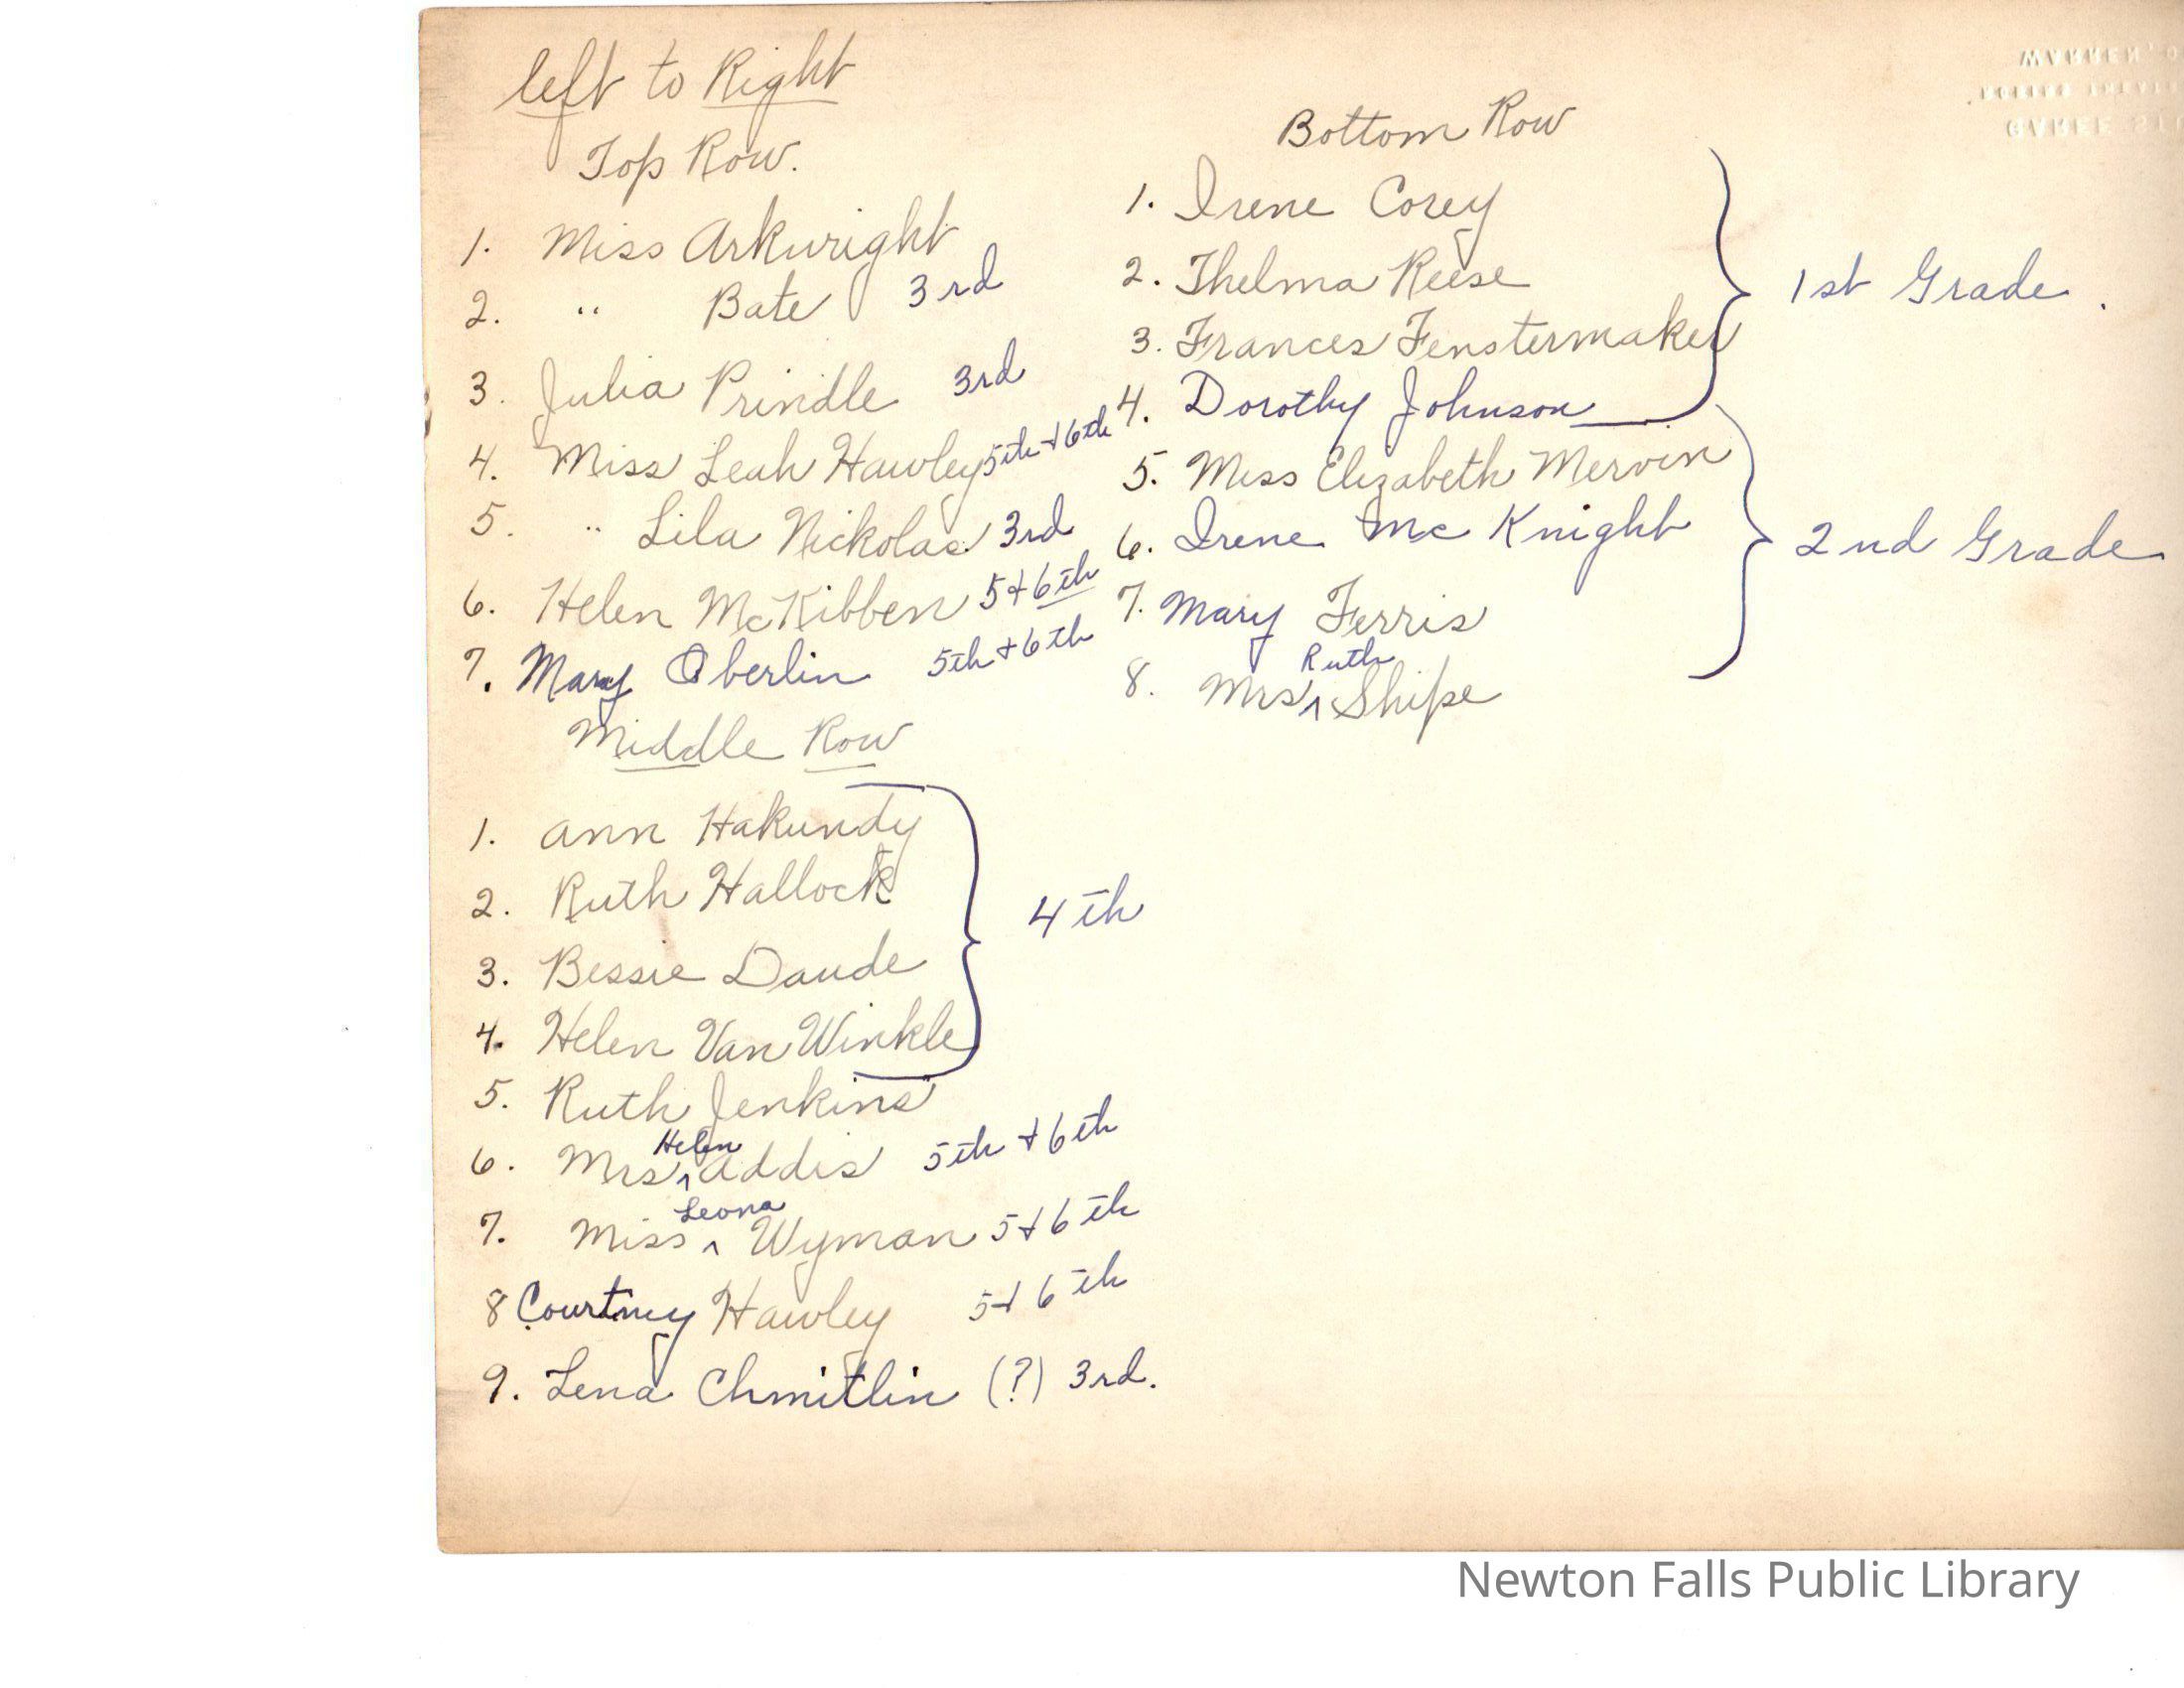 left to Right
Top Row.
1. Miss Arkwright
2. " Bate 3rd
3. Julia Prindle 3rd
4. Miss Leah Hawley 5th + 6th
5. " Lila Nickolas 3rd
6. Helen McKibben 5 + 6th
7. Mary Oberlin 5th + 6th
Middle Row
1. Ann Hakundy
2. Ruth Hallock
3. Bessie Daude
4. Helen Van Winkle
4th
5. Ruth Jenkins
6. Mrs ^ Helen Addis 5th + 6th
7. Miss ^ Leona Wyman 5 + 6th
8 Courtney Hawley 5 + 6th
9. Lena Chmitlin (?) 3rd.
Bottom Row
1. Irene Corey
2. Thelma Reese
3. Frances Fenstermaker
4. Dorothy Johnson
1st Grade.
5. Miss Elizabeth Mervin
6. Irene Mc Knight
7. Mary Ferris
8. Mrs ^ Ruth Shipe
2nd Grade
Newton Falls Public Library